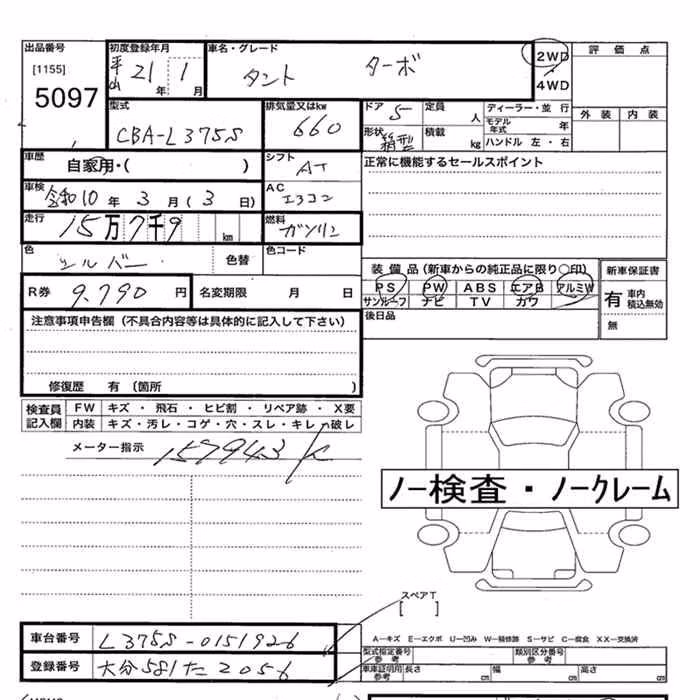 出品番号 初度登録年月 車名・グレード 評価点
[1155] 5097 平 21年 1月 タント ターボ 2WD 4WD
外装 内装
型式 CBA-L375S 排気量又はkw 660 ドア 5 定員 人 ディーラー・並行
形状 箱型 積載 kg モデル年式 年
ハンドル 左・右
車歴 自家用・( ) シフト AT 正常に機能するセールスポイント
車検 令和10年 3月(3日) AC エアコン
走行 15万7千9 km 燃料 ガソリン
色 シルバー 色替 色コード
装備品(新車からの純正品に限り〇印) 新車保証書
R券 9.790円 名変期限 月 日 PS PW ABS エアB アルミW 有 車内積込無効
サンルーフ ナビ TV カワ
注意事項申告欄(不具合内容等は具体的に記入して下さい) 後日品 無
修復歴 有 〔箇所 〕
検査員記入欄 FW キズ・飛石・ヒビ割・リペア跡・X要
内装 キズ・汚レ・コゲ・穴・スレ・キレ・破レ
メーター指示 157943 K
ノー検査・ノークレーム
スペアT
[ ]
車台番号 L375S-0151926 A-キズ E-エクボ U-凹み W-補修跡 S-サビ C-腐食 XX-交換済
型式指定番号 参考 類別区分番号 参考
登録番号 大分581た2056 車車証明用 参考 長さ cm 幅 cm 高さ cm